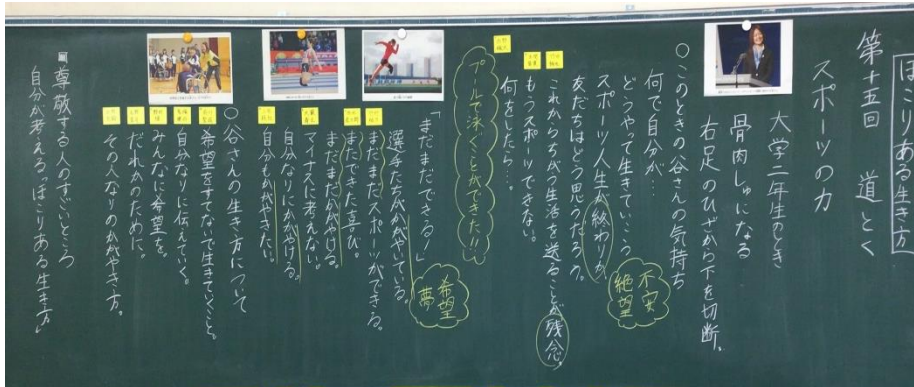 ほこりある生き方
第十五回 道とく
スポーツの力
大学二年生のとき
骨肉しゅになる
右足のひざから下を切断。
○このときの谷さんの気持ち
何で自分が…
どうやって生きていこう
スポーツ人生が終わりか。
友だちはどう思うだろう。
不安
絶望
これからちがう生活を送ることが残念。
もうスポーツできない。
何をしたら…。
プールで泳ぐことができた!!
「まだまだできる!」
選手たちがかがやいている。
まだまだスポーツができる。
またできた喜び。
まだまだかがやける。
マイナスに考えない。
自分なりにかがやける。
自分もかがやきたい。
希望
夢
○谷さんの生き方について
希望をすてないで生きていくこと。
自分なりに伝えていく。
みんなに希望を。
だれかのために。
その人なりのかがやき方。
尊敬する人のすごいところ
自分が考える「ほこりある生き方」